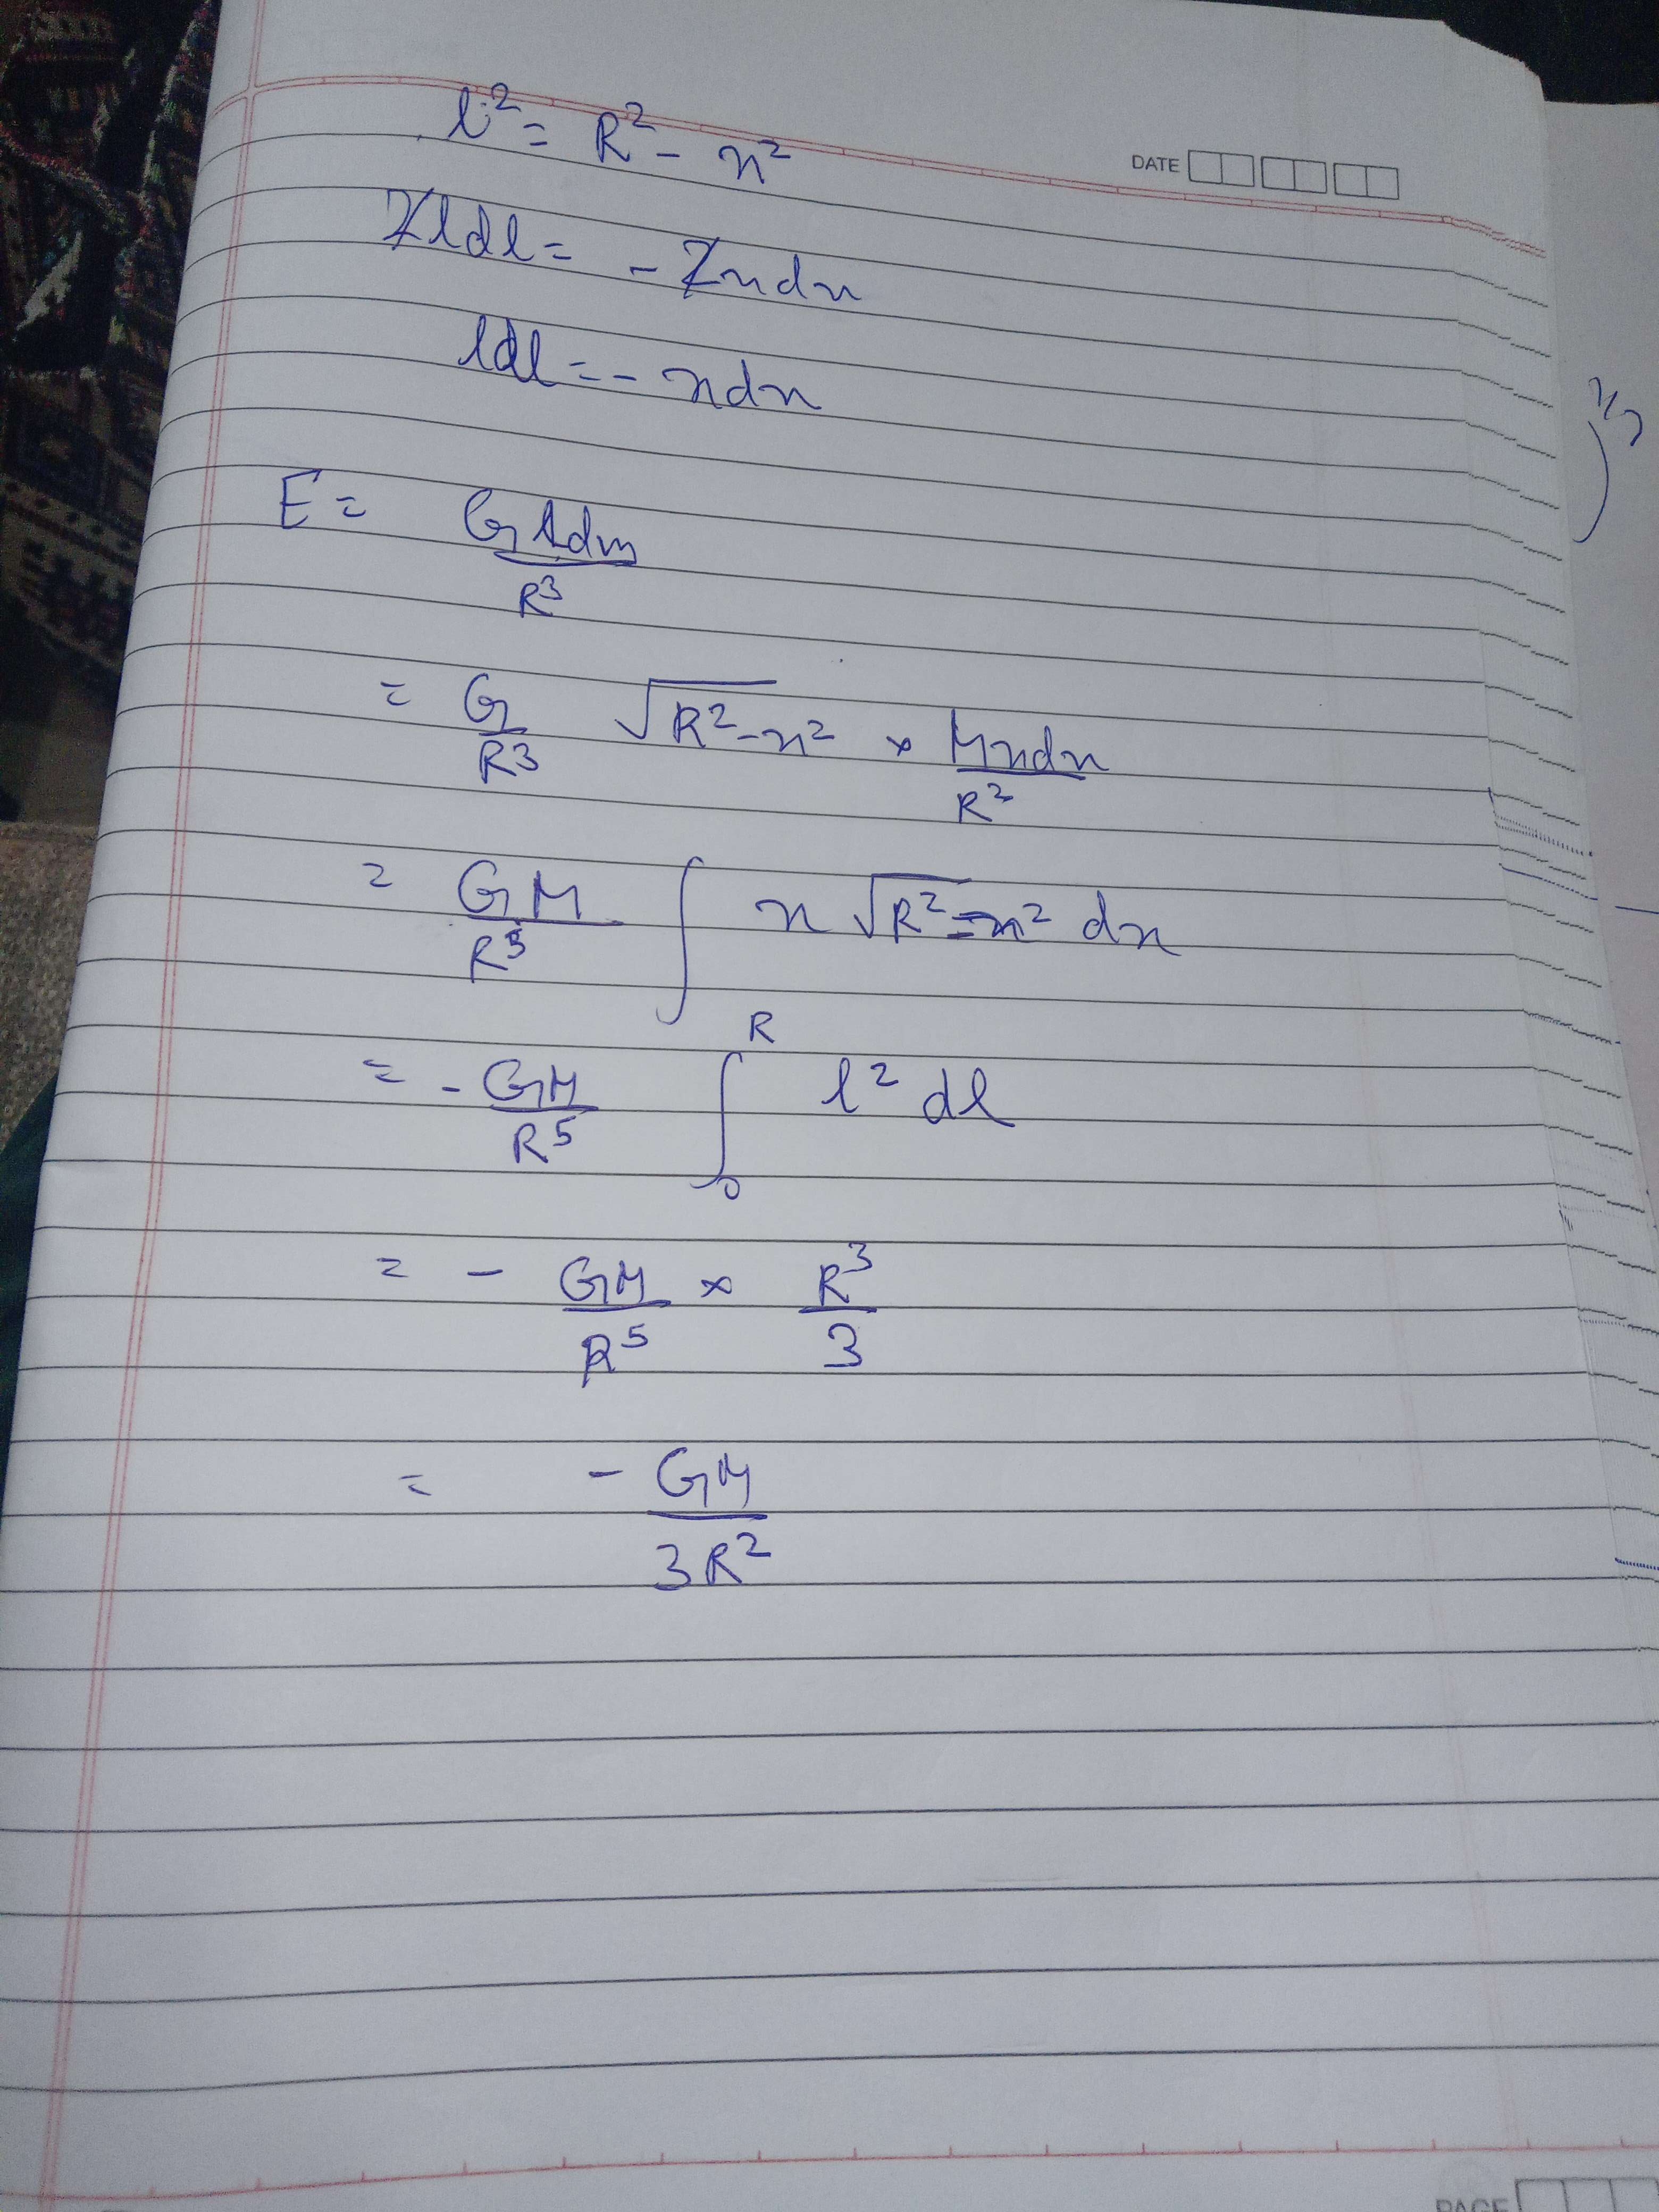 DATE
l² = R² - x²
2ldl = -2xdx
ldl = - xdx
E = G l dm / R³
= G/R³ √(R²-x²) × Mxdx/R²
= GM/R⁵ ∫ x √(R²-x²) dx
= - GM/R⁵ ∫₀ᴿ l² dl
= - GM/R⁵ × R³/3
= - GM/3R²
PAGE